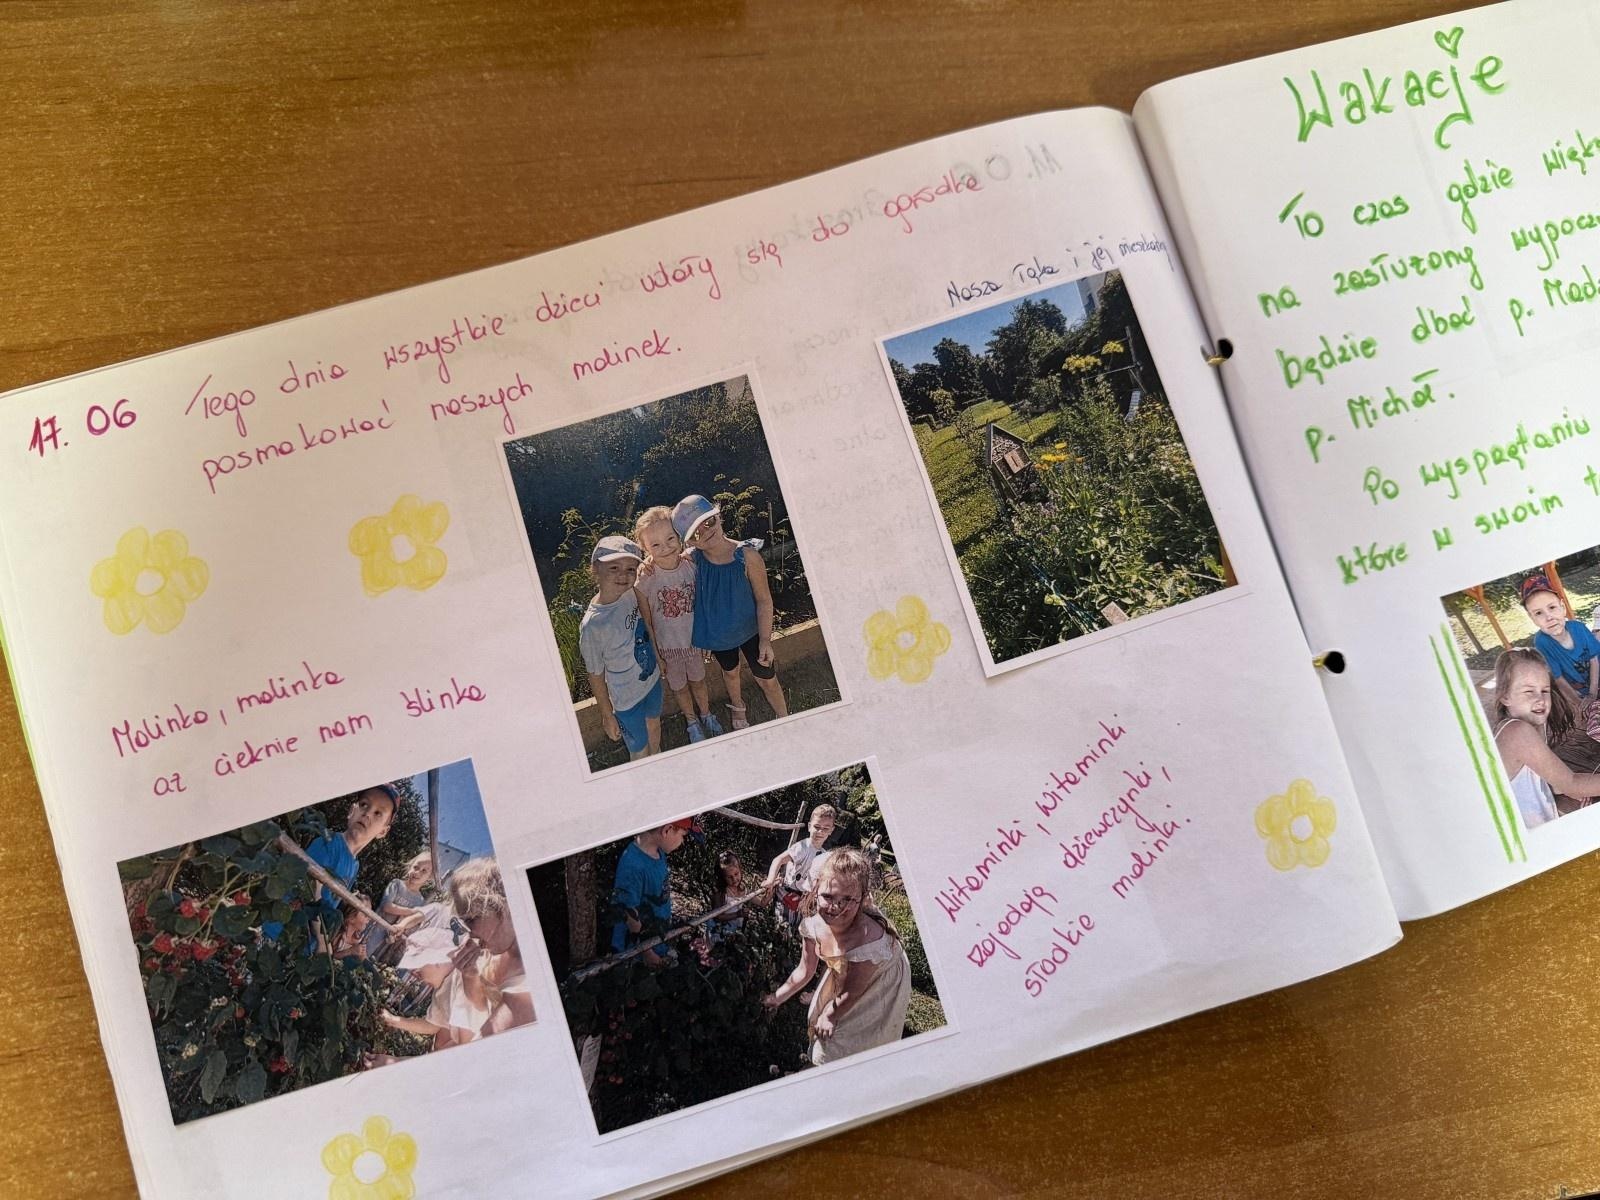 17. 06 Tego dnia wszystkie dzieci udały się do ogródka
posmakować naszych malinek.
Nasza łąka i jej mieszkańcy
Malinka, malinka
aż cieknie nam ślinka
Witaminki, witaminki
zajadają dziewczynki,
słodkie malinki.
Wakacje
To czas gdzie więk
na zasłużony wypocz
będzie dbać p. Madz
p. Michał.
Po wysprzątaniu
które w swoim